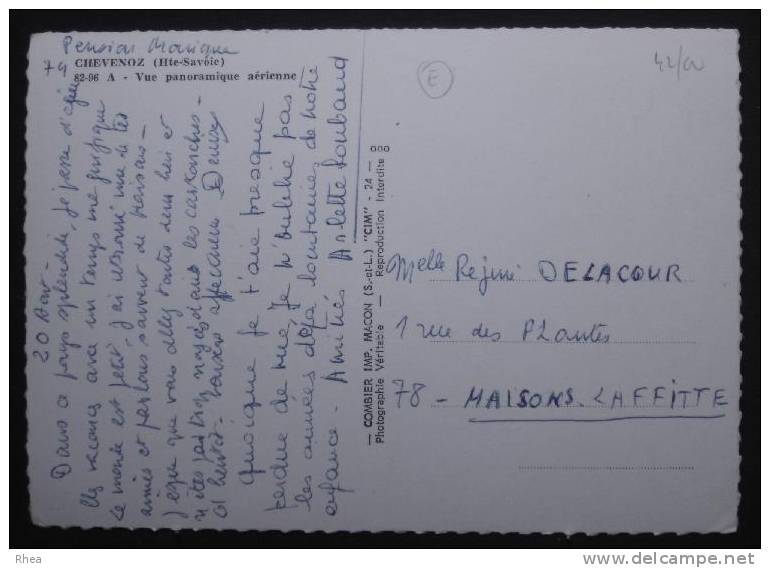 Pension Monique
74 CHEVENOZ (Hte-Savoie)
82-96 A - Vue panoramique aérienne
20 Aout -
Dans ce pays splendide, je passe d'
vacances avec un temps magnifique
Le monde est petit, j'ai retrouvé une de tes
amies et parlons souvent de Maisons -
J'espère que vous allez toutes deux bien et
n'êtes pas trop dans les cartouches -
A bientôt - affectueux Denise
quoique je t'aie presque
perdue de vue, je n'oublie pas
les années déjà lointaines de notre
enfance - Amitiés Arlette Loubaud
— COMBIER IMP. MACON (S.-et-L.) "CIM" - 24 —
Photographie Véritable — Reproduction Interdite
000
E
42/60
Melle Réjine DELACOUR
1 rue des Plantes
78 - MAISONS-LAFFITTE
Rhea
www.delcampe.net